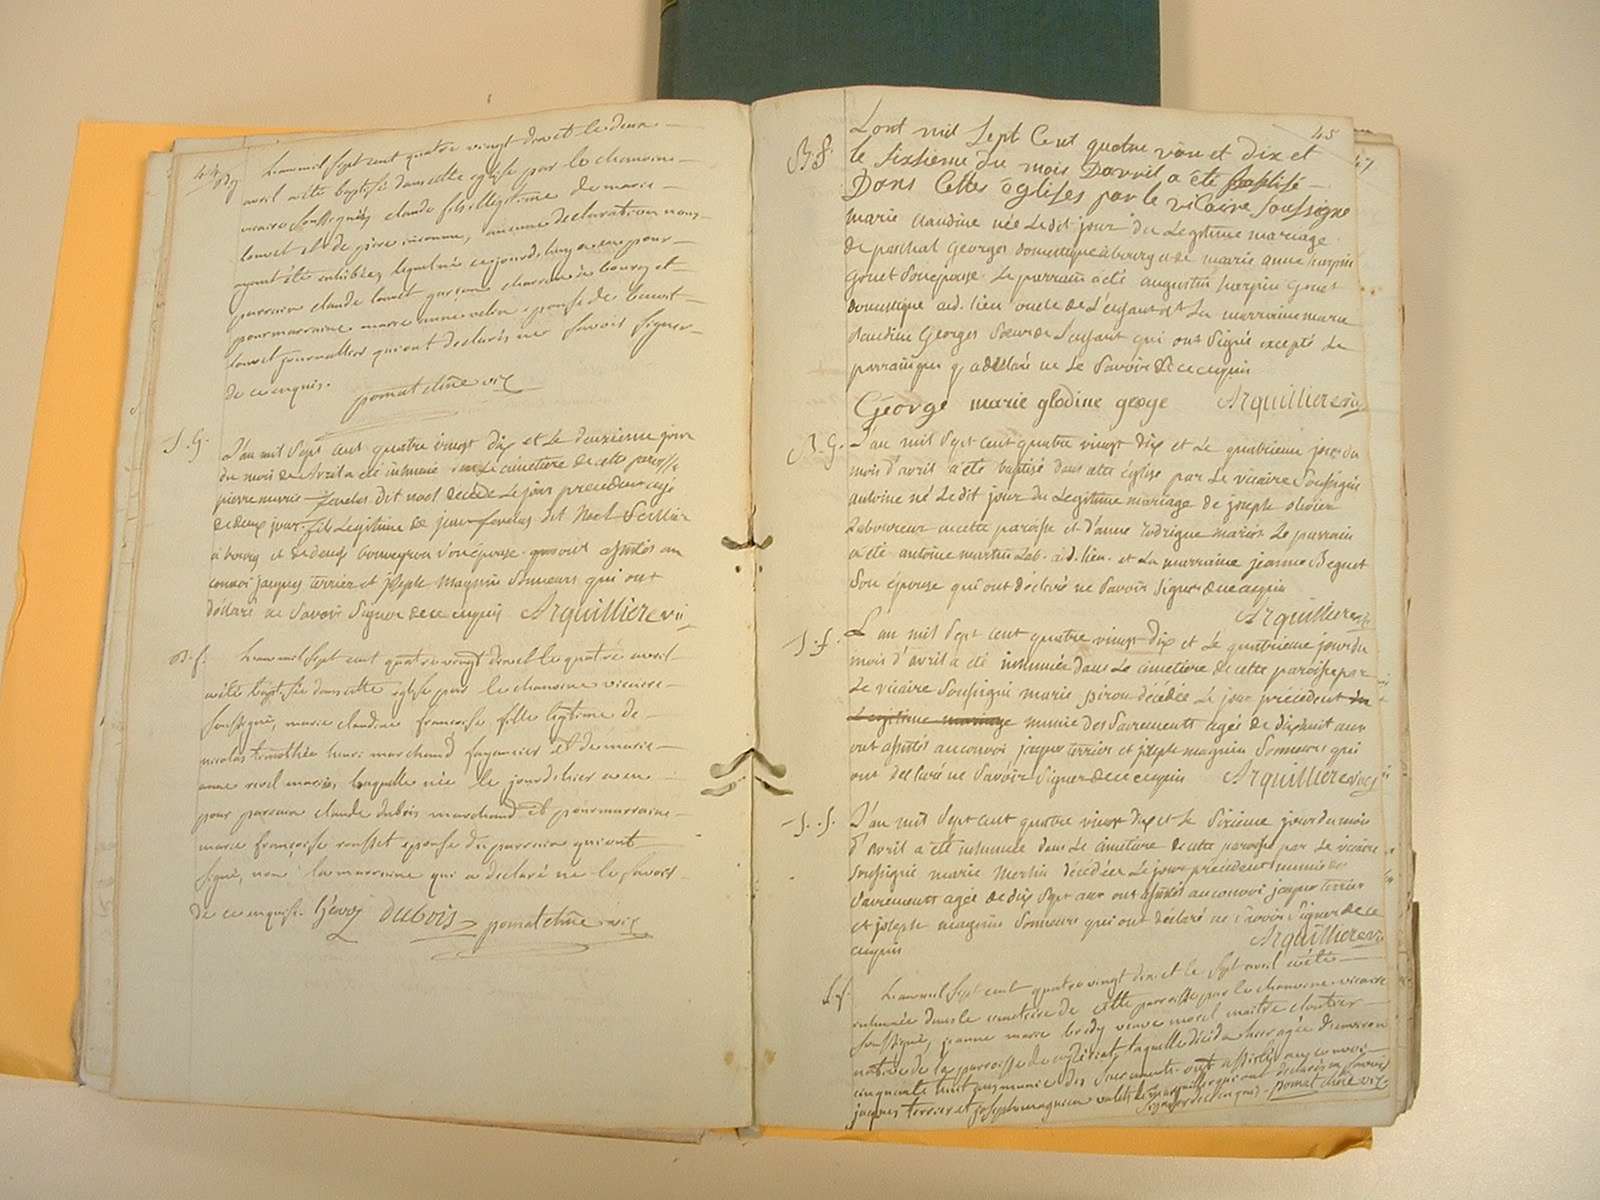 44
L'an mil sept cent quatre vingt dix et le deux
avril a été baptisé dans cette eglise par le chanoine
vicaire soussigné, claude fils illégitime de marie
louet et de père inconnu, aucune declaration nous
ayant été exhibée, lequel né ce jourd'huy a eu pour
parrain claude louet garçon charron à bourg et
pour marraine marie anne velon epouse de benoit
louet journallier qui ont declarés ne savoir signer
de ce enquis.
pomat chne vic
S. G.
L'an mil sept cent quatre vingt dix et le deuxieme jour
du mois de avril a été inhumé dans le cimetiere de cette paroisse
pierre marie dit noel décédé le jour precedent agé
de deux jours fils legitime de jean dit Noel
a bourg et de son epouse qui ont assistés au
convoi jacques terrier et joseph magnin sonneurs qui ont
déclaré ne savoir signer de ce enquis Arquilliere vic
B. f.
L'an mil sept cent quatre vingt dix et le quatre avril
a été baptisée dans cette eglise par le chanoine vicaire
soussigné, marie claudine françoise fille legitime de
nicolas timothée henri marchand fayancier et de marie
anne revel mariés, laquelle née le jour d'hier a eu
pour parrain claude dubois marchand et pour marraine
marie françoise rousset epouse du parrain qui ont
signé, non la marraine qui a declaré ne le savoir
de ce enquise. henry Dubois pomat chne vic
45
B. f.
Lant mil Sept Cent quatre vint et dix et
le Sixsieme du mois Davril a été Baptisé
Dans Cettes églises par le vicaire Soussigné
marie claudine née le dit jour du Legitime mariage
de paschal Georges domestique à bourg et de marie anne
Gonet son epouse. Le parrain a été augustin Gonet
domestique aud. lieu oncle de L'enfant et La marraine marie
claudine Georges Soeur de L'enfant qui ont Signé excepté Le
parrain qui a déclaré ne Le Savoir de ce enquis
George marie glodine geoge Arquilliere vic
B. G.
L'an mil Sept cent quatre vingt dix et Le quatrieme jour du
mois d'avril a été baptisé dans cette église par Le vicaire Soussigné
antoine né Le dit jour du Legitime mariage de joseph
Laboureur en cette paroisse et d'anne rodrigue mariés Le parrain
a été antoine martin Lab. aud. lieu. et La marraine jeanne Begnet
Son épouse qui ont déclaré ne Savoir Signer de ce enquis
Arquilliere vic
S. f.
L'an mil Sept cent quatre vingt dix et Le quatrieme jour du
mois d'avril a été inhumée dans Le cimetiere de cette paroisse par
Le vicaire Soussigné marie pirou décédée Le jour précédent du
Legitime mariage munie des Sacrements agée de dixhuit ans
ont assistés au convoi jacques terrier et joseph magnin Sonneurs qui
ont déclaré ne Savoir Signer de ce enquis Arquilliere vic
S. f.
L'an mil Sept cent quatre vingt dix et Le Sixieme jour du mois
d'avril a été inhumée dans Le cimetiere de cette paroisse par Le vicaire
Soussigné marie décédée Le jour précédent munie des
Sacrements agée de dix Sept ans ont assistés au convoi jacques terrier
et joseph magnin Sonneurs qui ont déclaré ne Savoir Signer de ce
enquis Arquilliere vic
S. f.
L'an mil sept cent quatre vingt dix et le sept avril a été
inhumée dans le cimetiere de cette paroisse par le chanoine vicaire
soussigné, jeanne marie bredy veuve morel maitre cloutier
native de la paroisse de laquelle décéda hier agée d'environ
cinquante huit ans munie des sacrements. ont assistés au convoi
jacques terrier et joseph magnien qui ont declarés ne savoir
signer de ce enquis. pomat chne vic
47